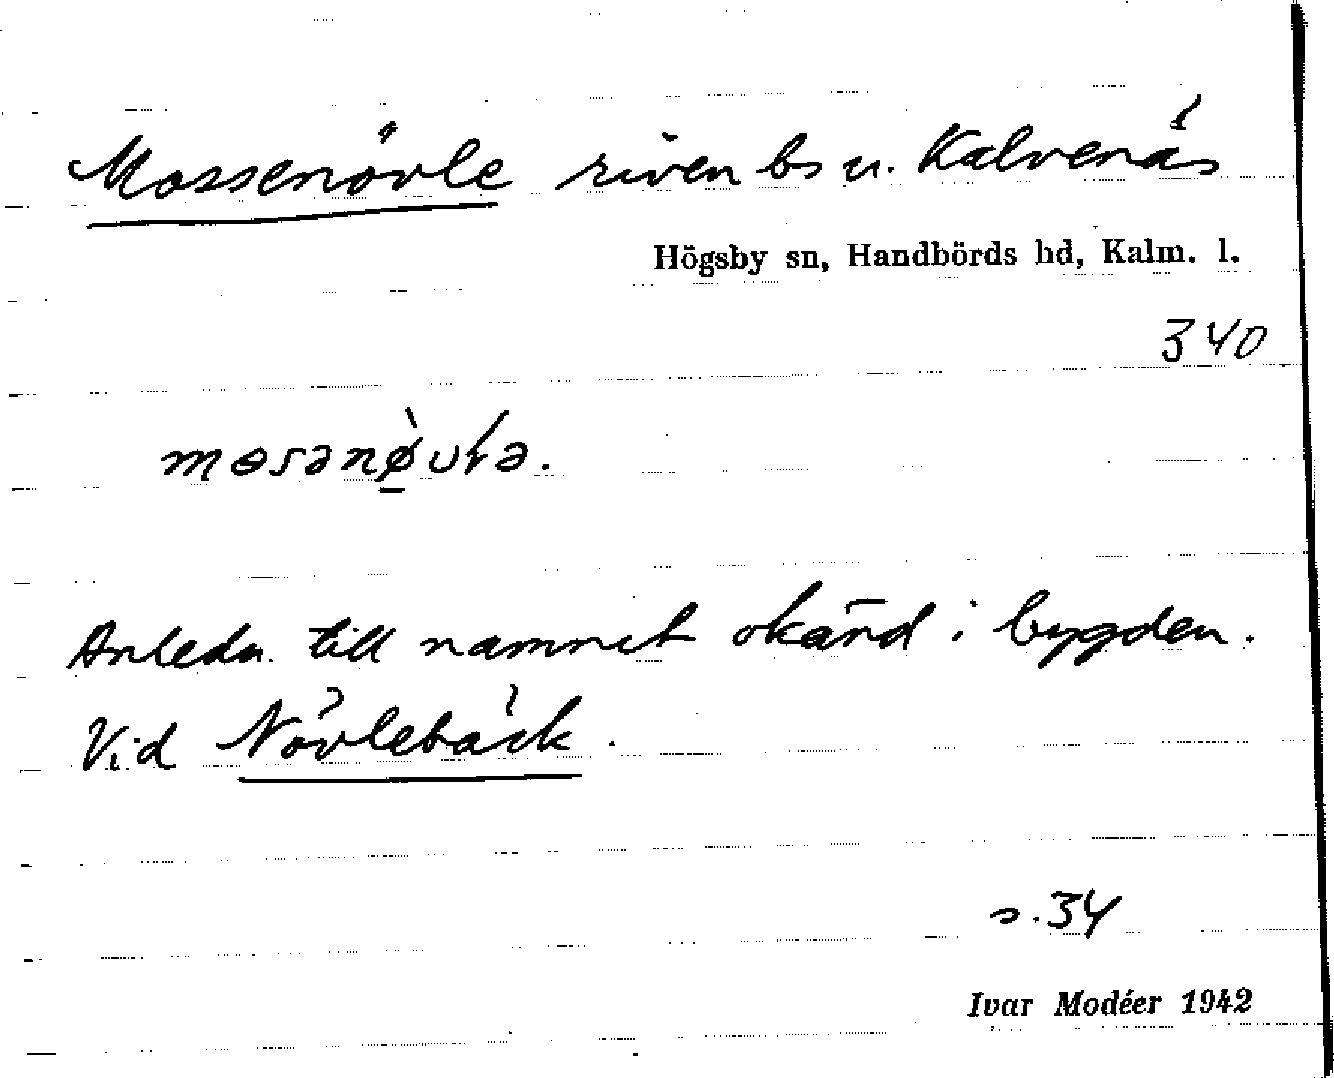 Mossenövle riven bs u. Kalvenäs
Högsby sn, Handbörds hd, Kalm. l.
340
mɵsənø̀vlə.
Anledn. till namnet okänd i bygden.
Vid Növlebäck.
s. 34
Ivar Modéer 1942